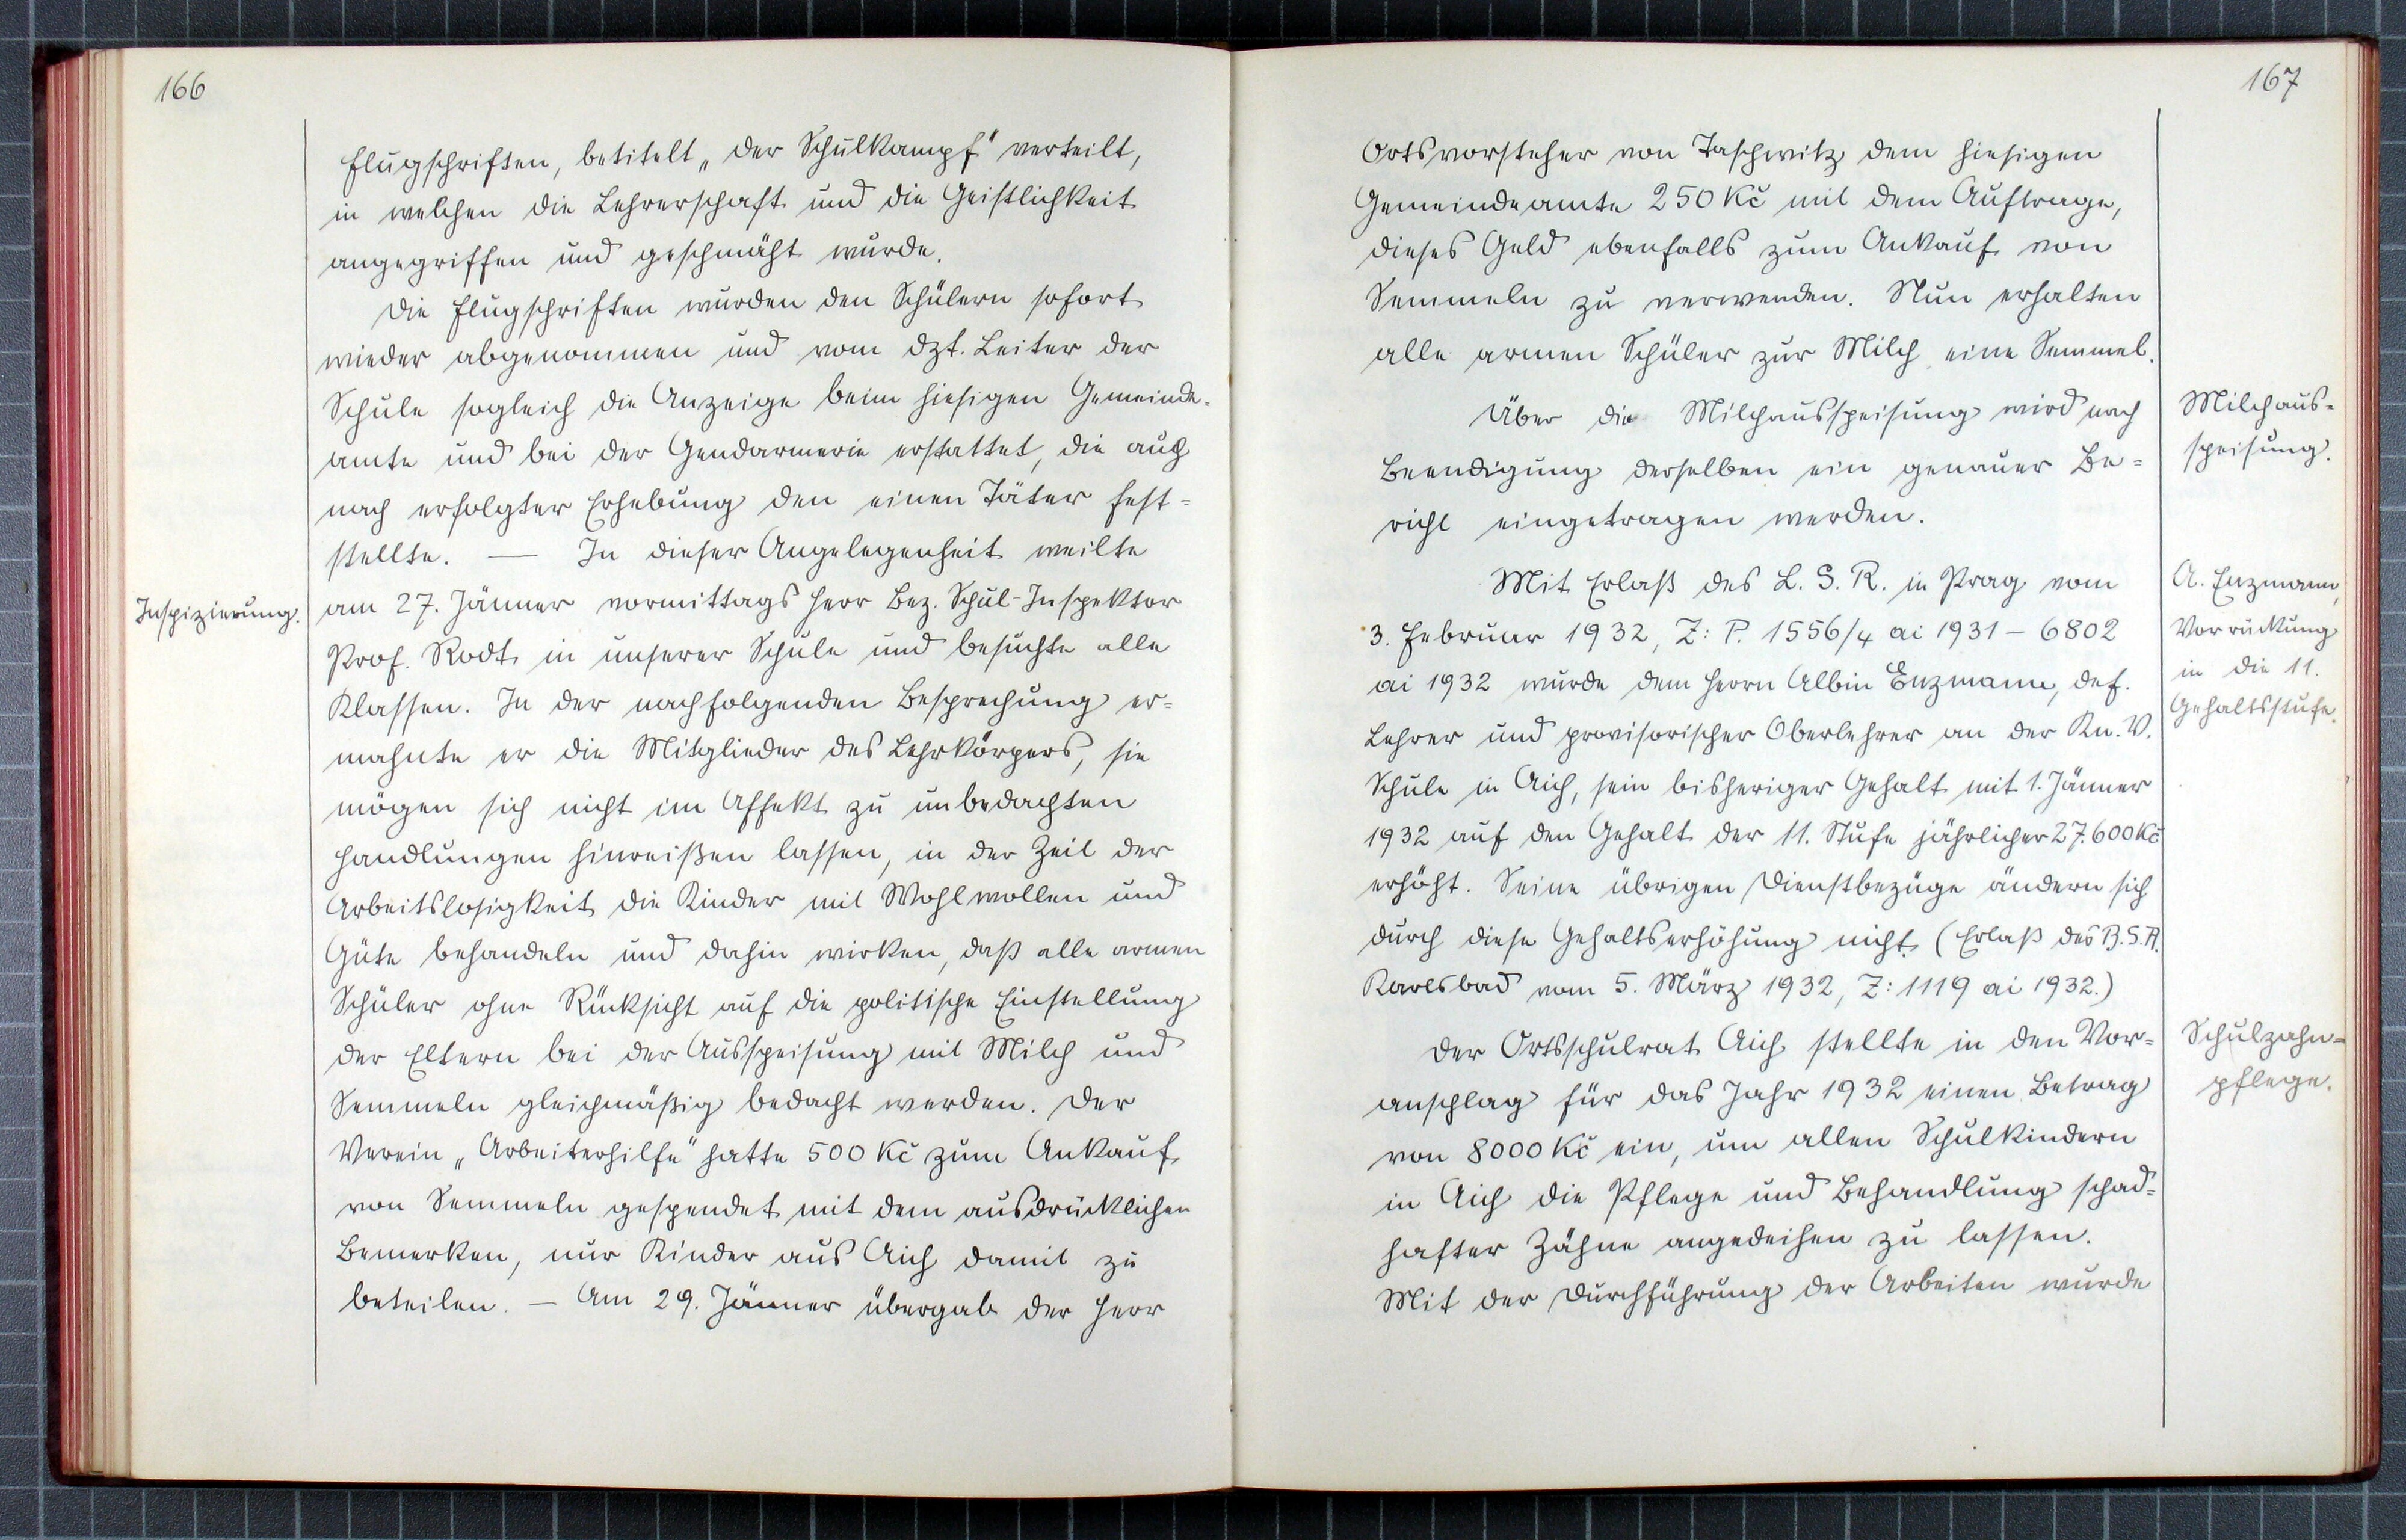 166
Flugschriften, betitelt „Der Schulkampf" verteilt,
in welchen die Lehrerschaft und die Geistlichkeit
angegriffen und geschmäht wurde.
Die Flugschriften wurden den Schülern sofort
wieder abgenommen und vom dzt. Leiter der
Schule sogleich die Anzeige beim hiesigen Gemeinde-
amte und bei der Gendarmerie erstattet, die auch
nach erfolgter Erhebung den einen Täter fest=
stellte. — In dieser Angelegenheit weilte
Inspizierung.
am 27. Jänner vormittags Herr Bez. Schul-Inspektor
Prof. Rodt in unserer Schule und besuchte alle
Klassen. In der nachfolgenden Besprechung er=
mahnte er die Mitglieder des Lehrkörpers, sie
mögen sich nicht im Affekt zu unbedachten
Handlungen hinreißen lassen, in der Zeit der
Arbeitslosigkeit die Kinder mit Wohlwollen und
Güte behandeln und dahin wirken, daß alle armen
Schüler ohne Rücksicht auf die politische Einstellung
der Eltern bei der Ausspeisung mit Milch und
Semmeln gleichmäßig bedacht werden. Der
Verein „Arbeiterhilfe" hatte 500 Kč zum Ankauf
von Semmeln gespendet mit dem ausdrücklichen
Bemerken, nur Kinder aus Aich damit zu
beteilen. — Am 29. Jänner übergab der Herr
167
Ortsvorsteher von Taschwitz dem hiesigen
Gemeindeamte 250 Kč mit dem Auftrage,
dieses Geld ebenfalls zum Ankauf von
Semmeln zu verwenden. Nun erhalten
alle armen Schüler zur Milch eine Semmel.
Über die Milchausspeisung wird nach
Beendigung derselben ein genauer Be=
richt eingetragen werden.
Milchaus=
speisung.
Mit Erlaß des L. S. R. in Prag vom
3. Februar 1932, Z: P. 1556/4 ai 1931 – 6802
ai 1932 wurde dem Herrn Albin Enzmann, def.
Lehrer und provisorischer Oberlehrer an der Kn. V.
Schule in Aich, sein bisheriger Gehalt mit 1. Jänner
1932 auf den Gehalt der 11. Stufe jährlicher 27.600 Kč
erhöht. Seine übrigen Dienstbezüge ändern sich
durch diese Gehaltserhöhung nicht. (Erlaß des B. S. A.
Karlsbad vom 5. März 1932, Z: 1119 ai 1932.)
A. Enzmann,
Vorrückung
in die 11.
Gehaltsstufe.
Der Ortsschulrat Aich stellte in den Vor=
anschlag für das Jahr 1932 einen Betrag
von 8000 Kč ein, um allen Schulkindern
in Aich die Pflege und Behandlung schad=
hafter Zähne angedeihen zu lassen.
Mit der Durchführung der Arbeiten wurde
Schulzahn=
pflege.